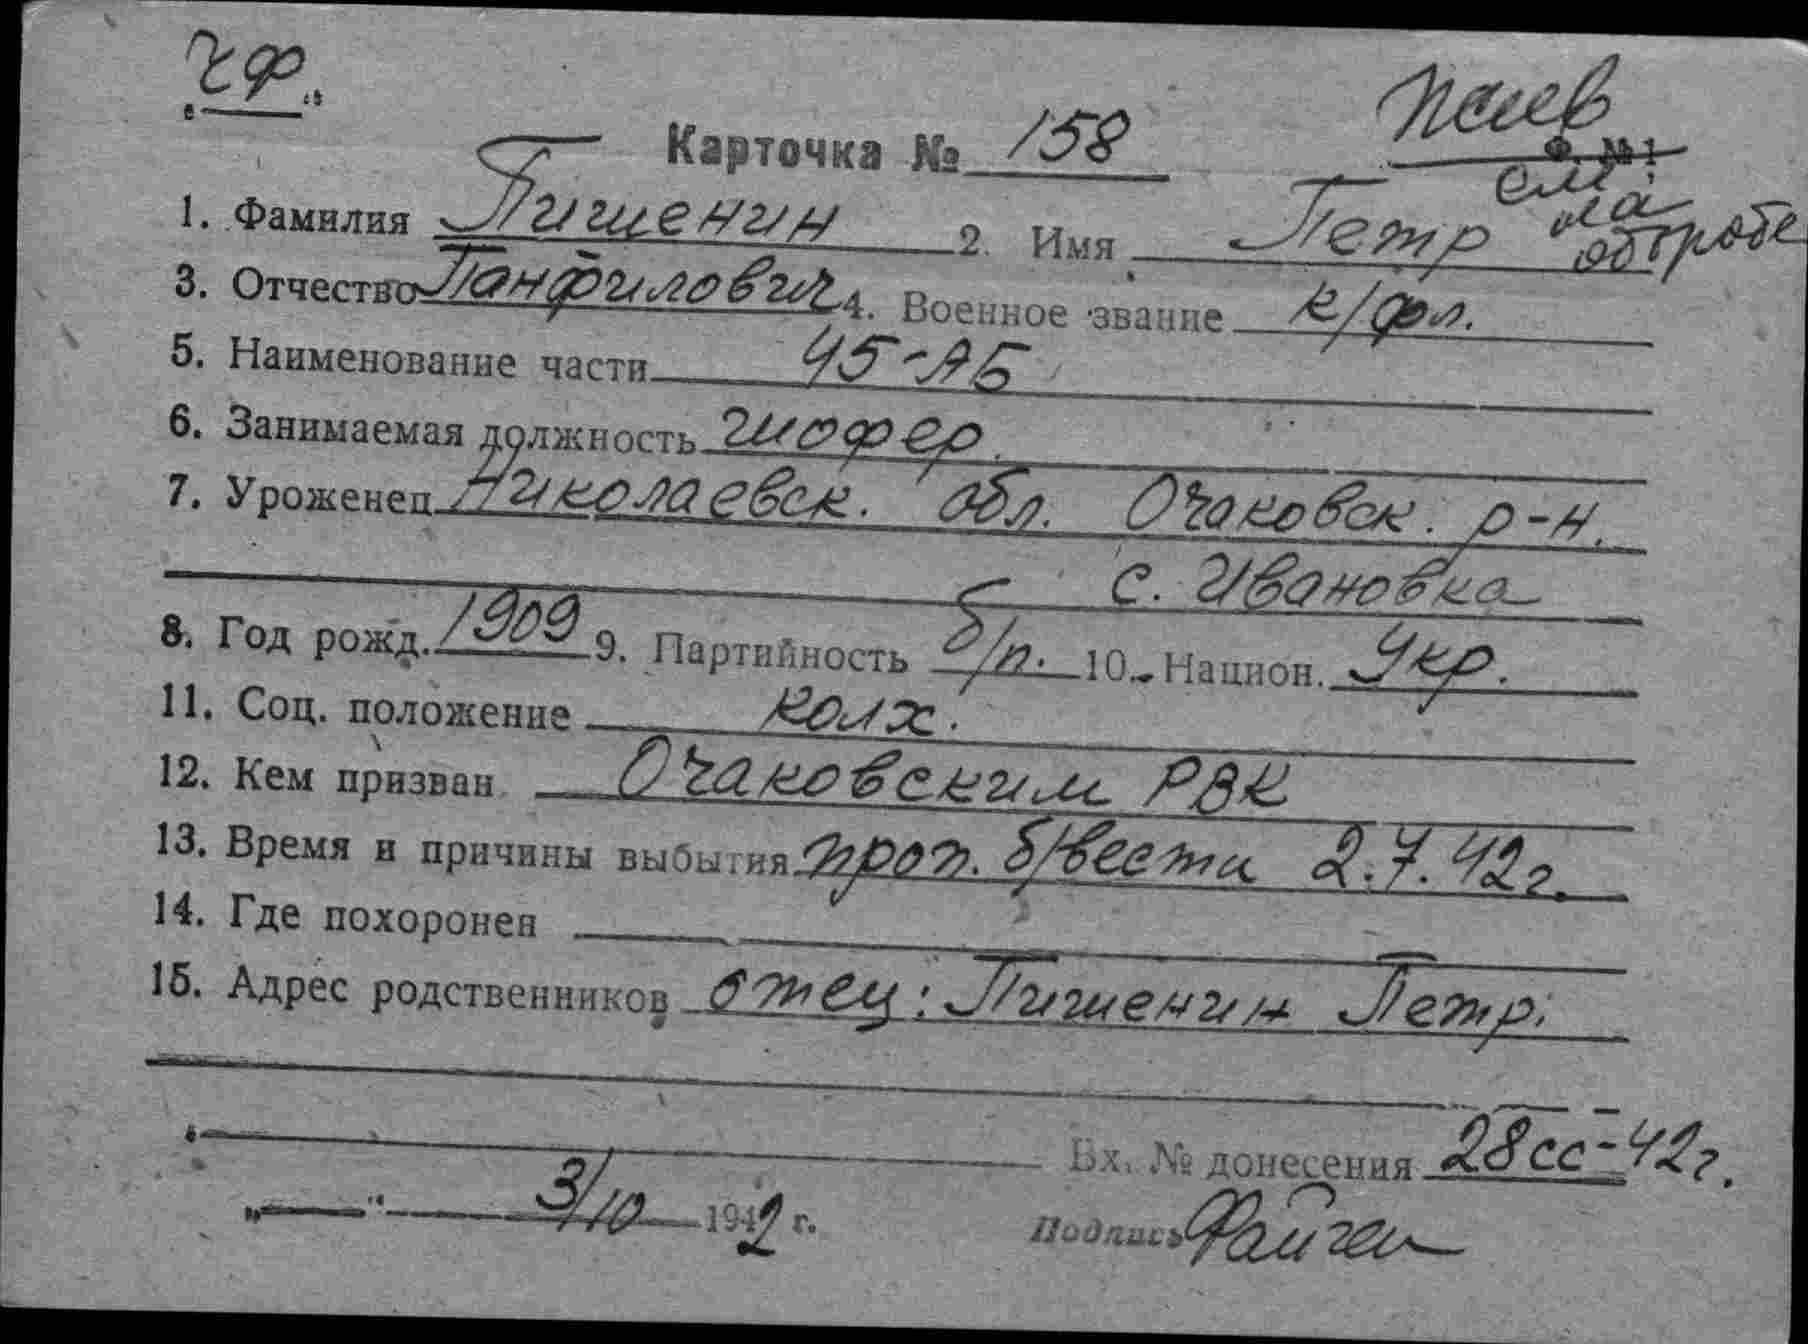 ЧФ.
Карточка № 158
Ф. № 1
см. на обороте
1. Фамилия Пишенин 2. Имя Петр
3. Отчество Панфилович 4. Военное звание к/фл.
5. Наименование части 45-АБ
6. Занимаемая должность шофер.
7. Уроженец Николаевск. обл. Очаковск. р-н.
с. Ивановка
8. Год рожд. 1909 9. Партийность б/п. 10. Национ. Укр.
11. Соц. положение колх.
12. Кем призван Очаковским РВК
13. Время и причины выбытия проп. б/вести 2.7.42г.
14. Где похоронен
15. Адрес родственников отец: Пишенин Петр.
Вх. № донесения 28сс-42г.
„ “ 3/10 1942 г. Подпись